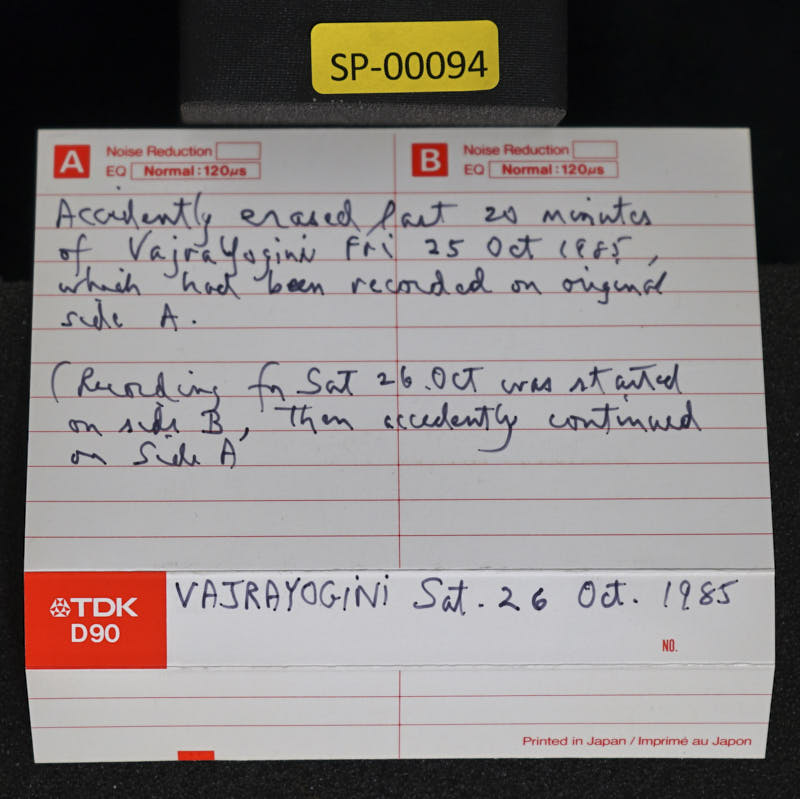 SP-00094
A Noise Reduction B Noise Reduction
EQ Normal:120μs EQ Normal:120μs
Accidently erased last 20 minutes
of VajraYogini Fri 25 Oct 1985,
which had been recorded on original
side A.
(Recording for Sat 26.Oct was started
on side B, then accedently continued
on Side A
TDK VAJRAYOGINI Sat. 26 Oct. 1985
D90
NO.
Printed in Japan / Imprimé au Japon